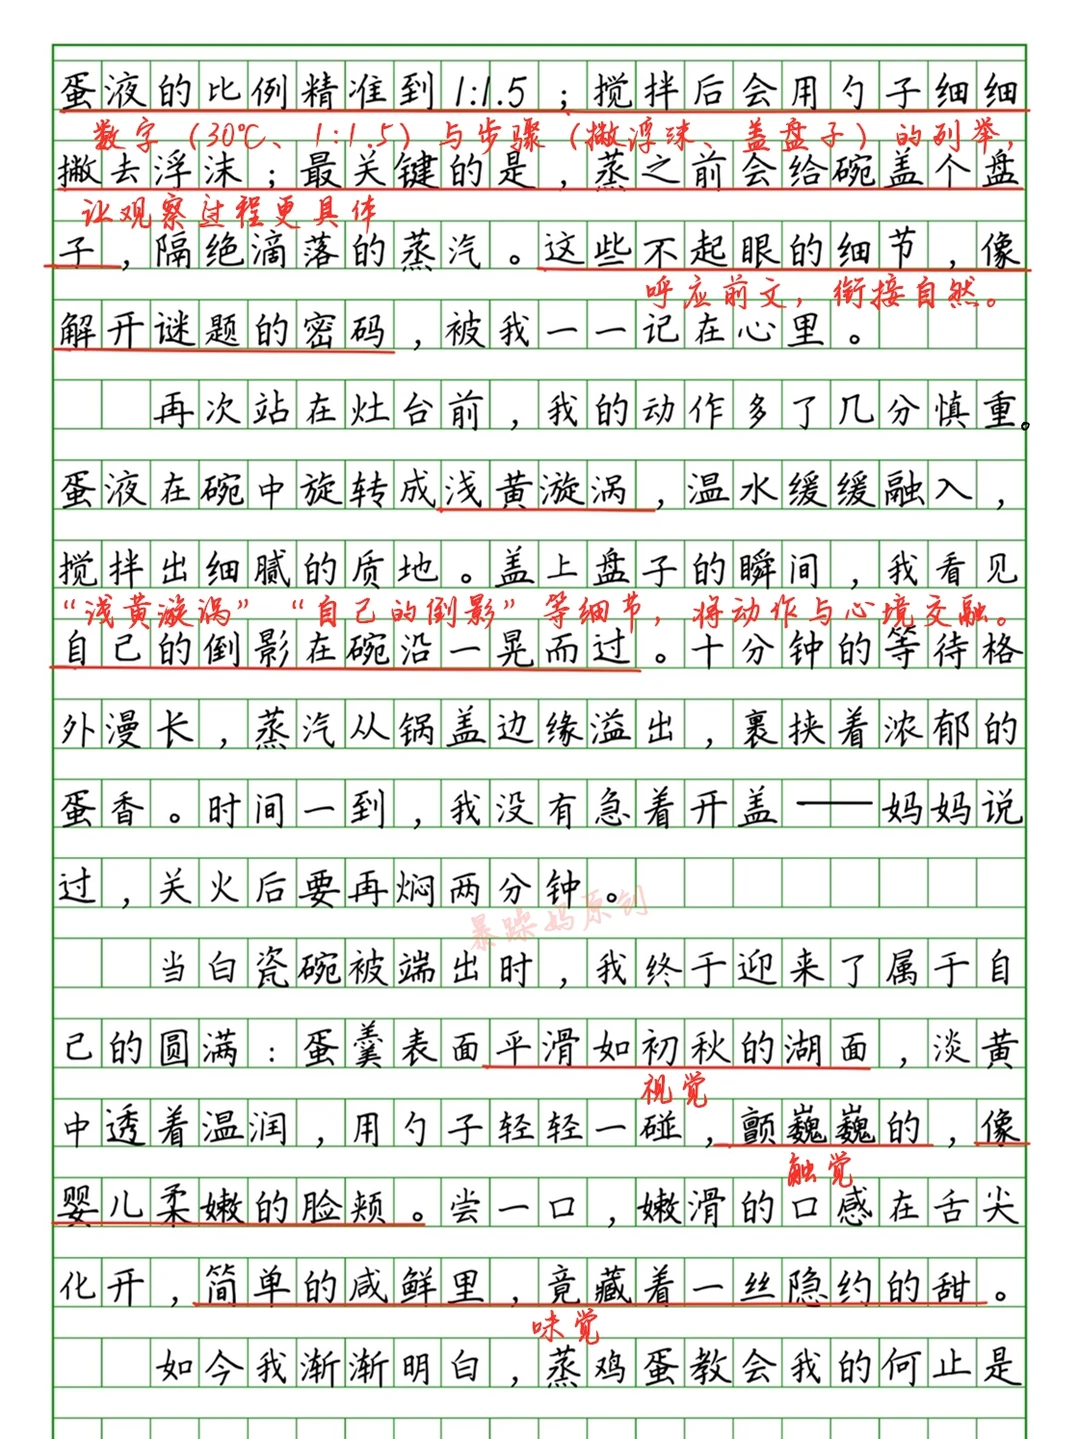 蛋液的比例精准到1:1.5；搅拌后会用勺子细细
数字（30℃、1:1.5）与步骤（撇浮沫、盖盘子）的列举，
撇去浮沫；最关键的是，蒸之前会给碗盖个盘
让观察过程更具体
子，隔绝滴落的蒸汽。这些不起眼的细节，像
呼应前文，衔接自然。
解开谜题的密码，被我一一记在心里。
再次站在灶台前，我的动作多了几分慎重。
蛋液在碗中旋转成浅黄漩涡，温水缓缓融入，
搅拌出细腻的质地。盖上盘子的瞬间，我看见
“浅黄漩涡”“自己的倒影”等细节，将动作与心境交融。
自己的倒影在碗沿一晃而过。十分钟的等待格
外漫长，蒸汽从锅盖边缘溢出，裹挟着浓郁的
蛋香。时间一到，我没有急着开盖——妈妈说
过，关火后要再焖两分钟。
暴躁妈原创
当白瓷碗被端出时，我终于迎来了属于自
己的圆满：蛋羹表面平滑如初秋的湖面，淡黄
视觉
中透着温润，用勺子轻轻一碰，颤巍巍的，像
触觉
婴儿柔嫩的脸颊。尝一口，嫩滑的口感在舌尖
化开，简单的咸鲜里，竟藏着一丝隐约的甜。
味觉
如今我渐渐明白，蒸鸡蛋教会我的何止是